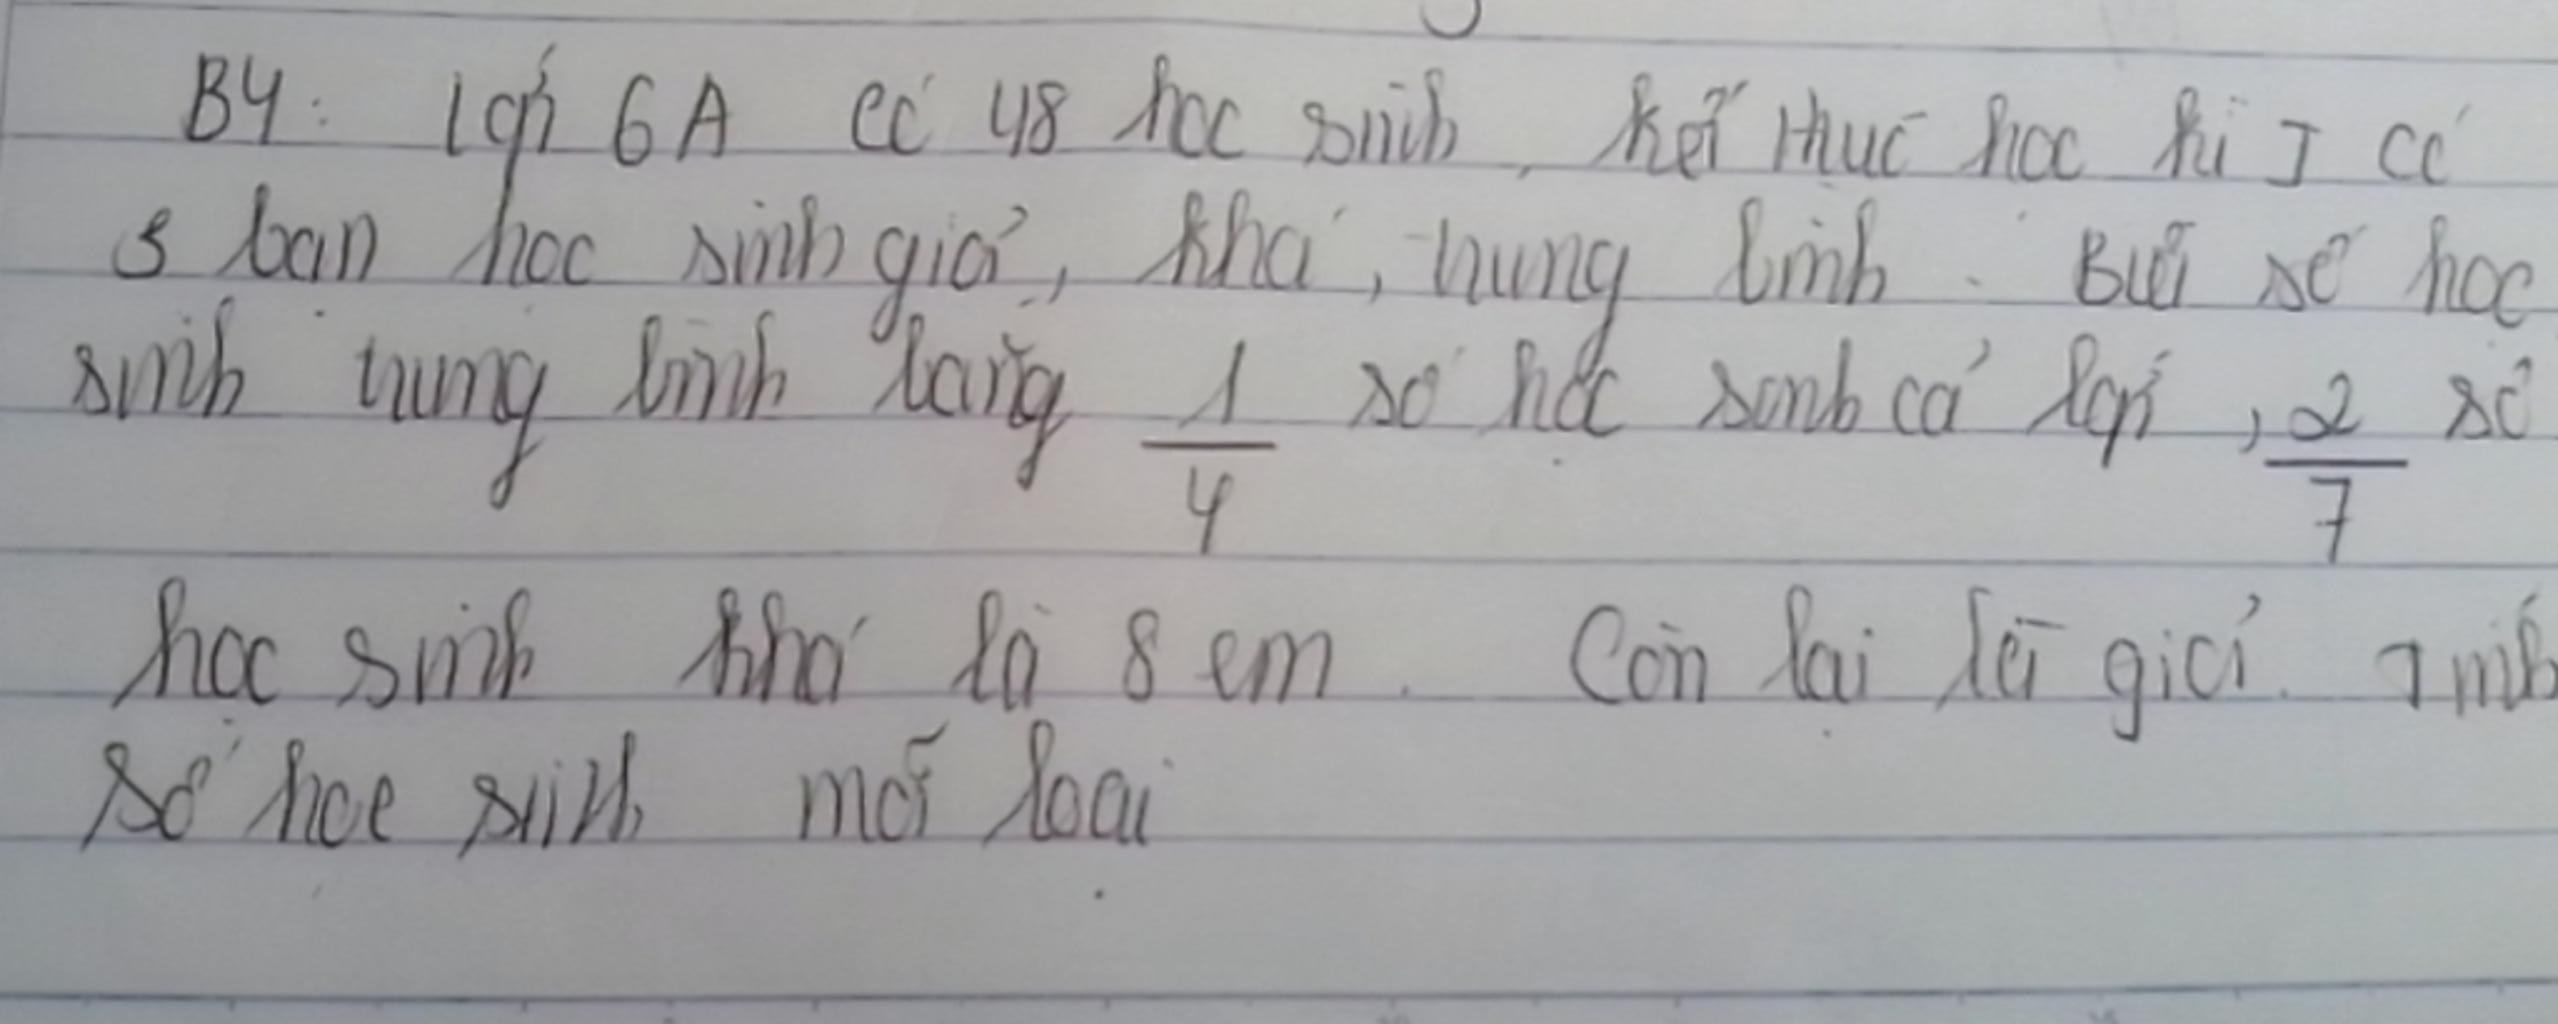 B4: Lớp 6A có 48 học sinh, kết thúc học kì I có
3 bạn học sinh giỏi, khá, trung bình. Biết số học
sinh trung bình bằng 1/4 số học sinh cả lớp, 2/7 số
học sinh khá là 8 em. Còn lại là giỏi. Tính
số học sinh mỗi loại